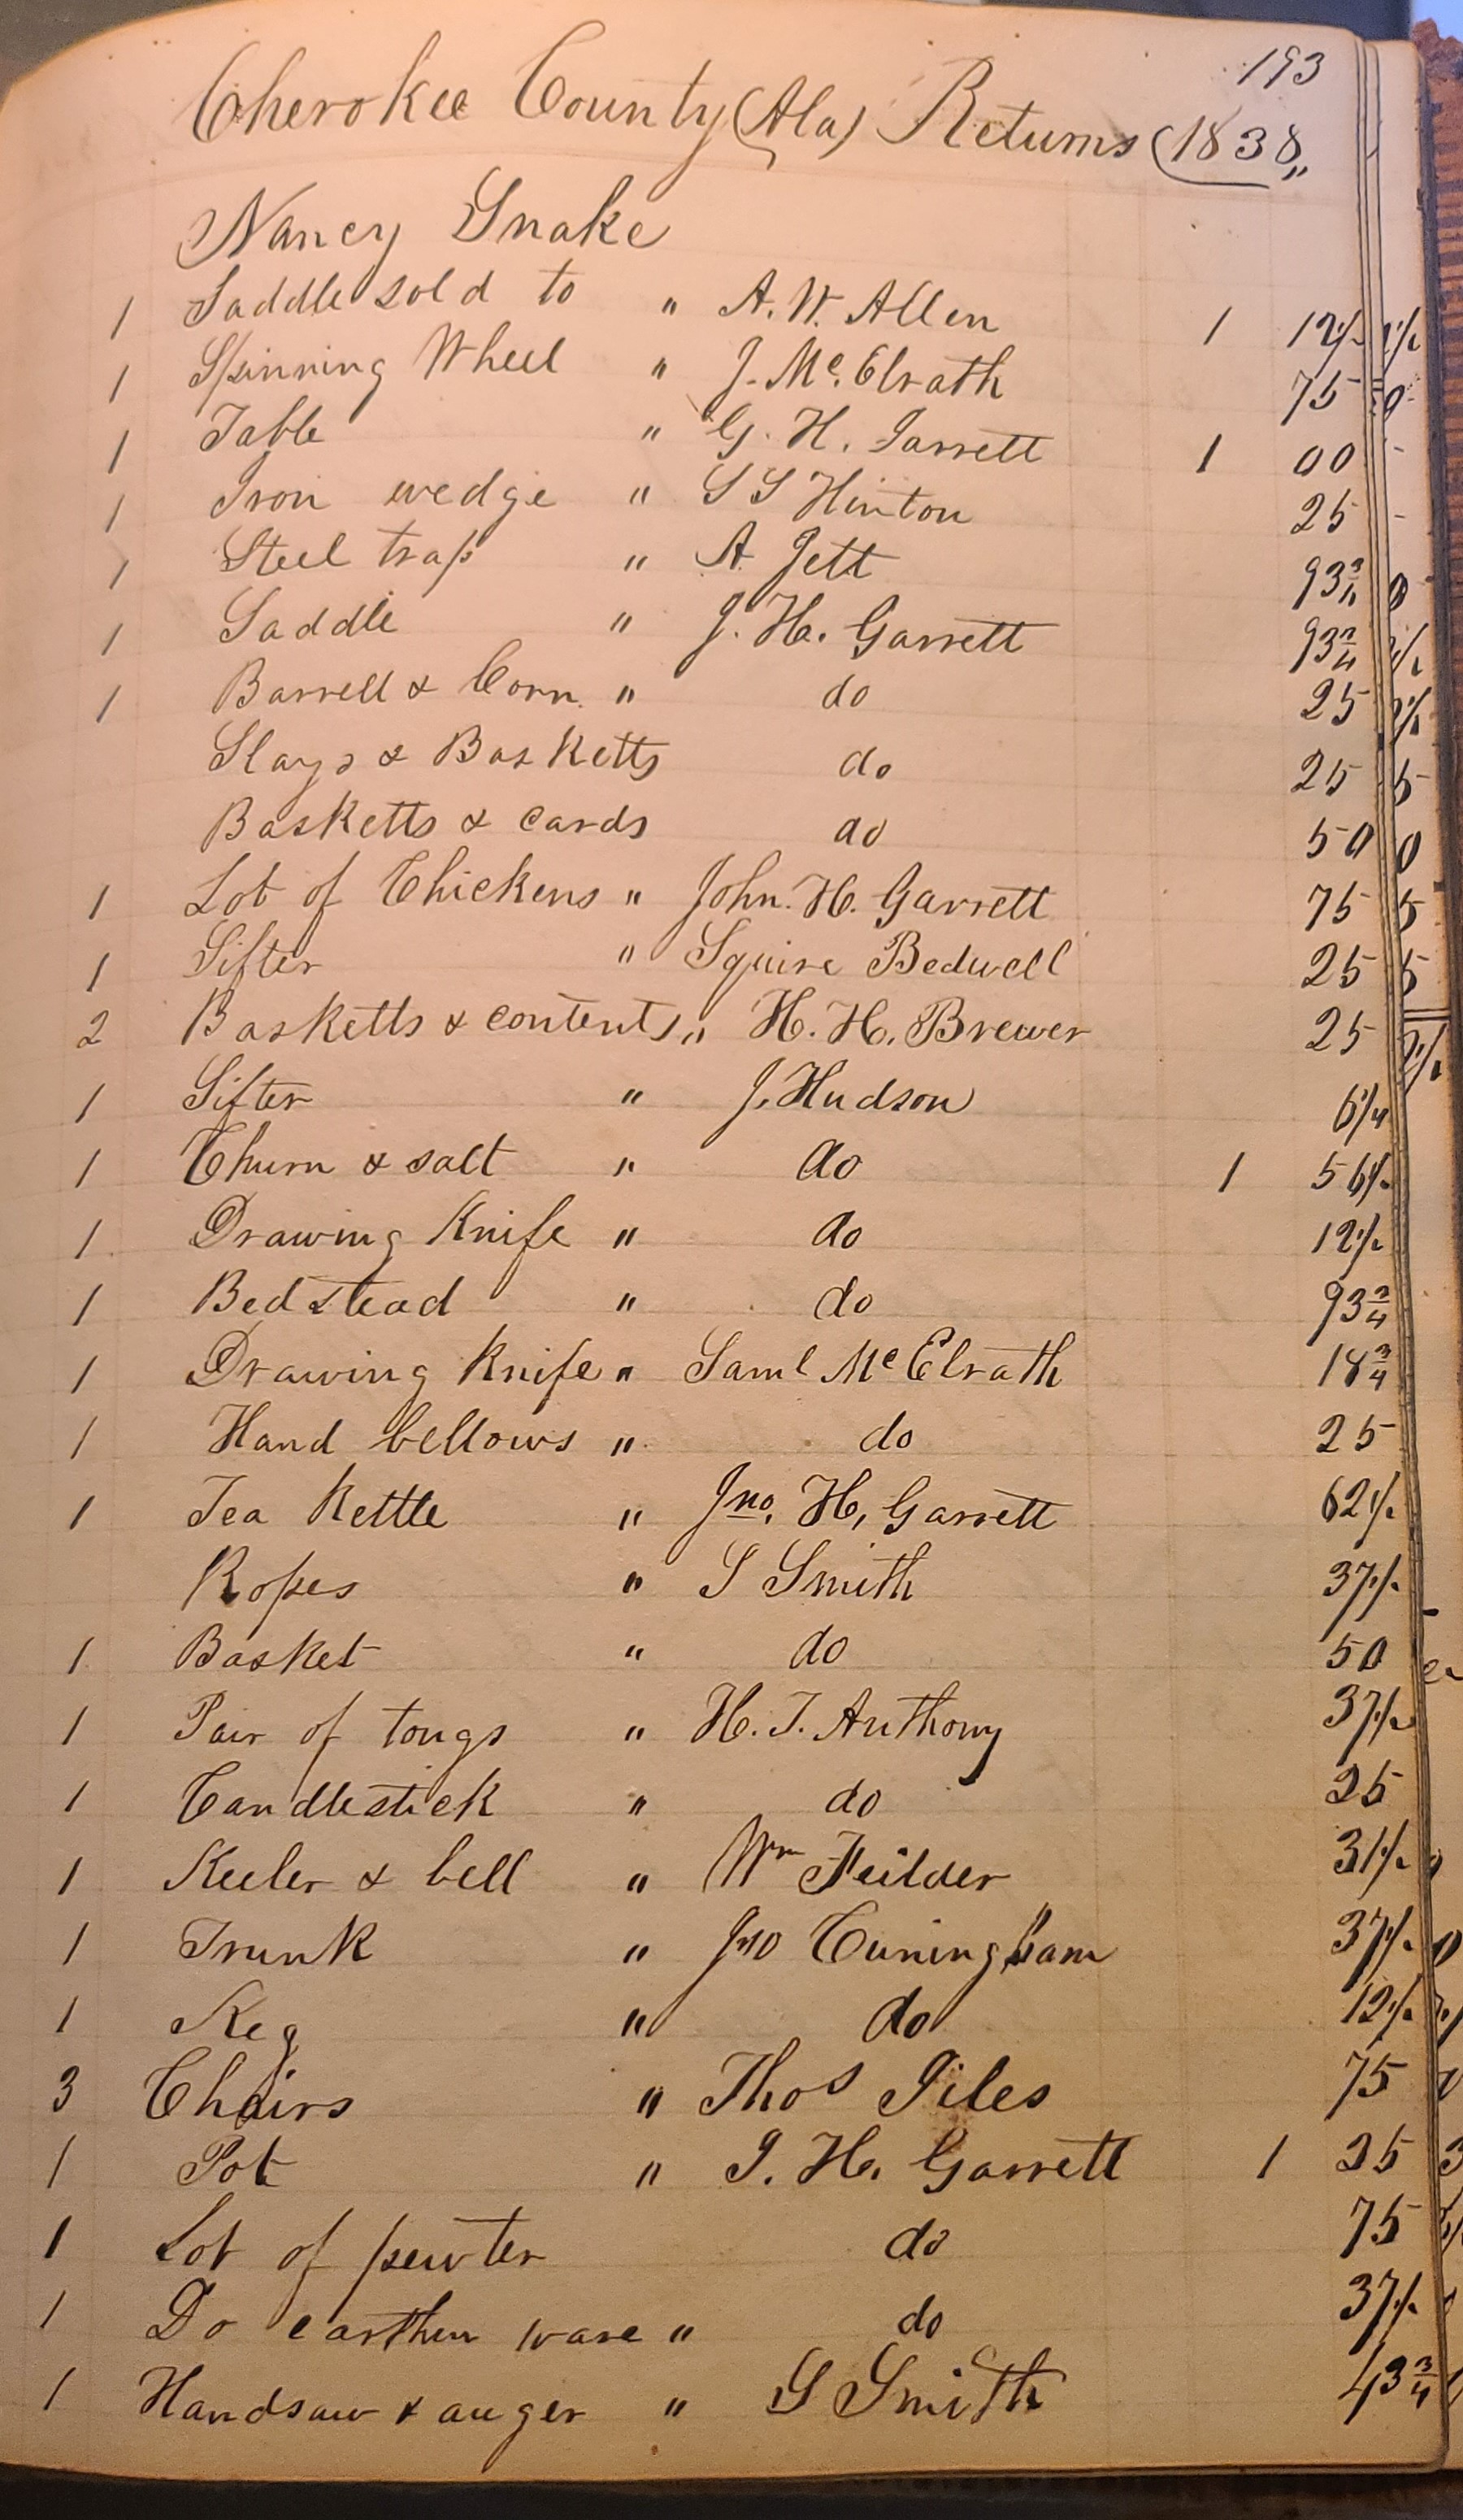 193
Cherokee County (Ala) Returns (1838,,
Nancy Snake
1 Saddle sold to " A. W. Allen 1 12 1/2
1 Spinning Wheel " J. Mc. Elrath 75
1 Table " G. H. Garrett 1 00
1 Iron wedge " S S Hinton 25
1 Steel trap " A Jett 93 3/4
1 Saddle " J. H. Garrett 93 3/4
1 Barrell & Corn " do 25
Slays & Basketts do 25
Basketts & cards do 50
1 Lot of Chickens " John. H. Garrett 75
1 Sifter " Squire Bedwell 25
2 Basketts & contents " H. H. Brewer 25
1 Sifter " J. Hudson 6 1/4
1 Churn & salt " do 1 56 1/4
1 Drawing Knife " do 12 1/2
1 Bedstead " do 93 3/4
1 Drawing Knife " Saml Mc Elrath 18 3/4
1 Hand bellows " do 25
1 Tea Kettle " Jno. H, Garrett 62 1/2
Ropes " S Smith 37 1/2
1 Basket " do 50
1 Pair of tongs " H. T. Anthony 37 1/2
1 Candlestick " do 25
1 Keeler & bell " Wm Feilder 31 1/4
1 Trunk " Jno Cuningham 37 1/2
1 Keg " do 12 1/2
3 Chairs " Thos Giles 75
1 Pot " J. H. Garrett 1 25
1 Lot of pewter do 75
1 Do earthen ware " do 37 1/2
1 Handsaw & auger " S Smith 43 3/4